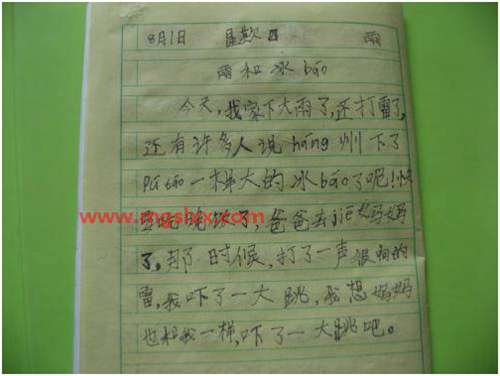 8月1日 星期日 雨
雨和冰báo
今天,我家下大雨了,还打雷了,
还有许多人说háng州下了
pú táo一样大的冰báo了呢!快
吃晚饭了,爸爸去jiē妈妈
了,那时候,打了一声很响的
雷,我吓了一大跳,我想妈妈
也和我一样,吓了一大跳吧。
www.mgshx.com